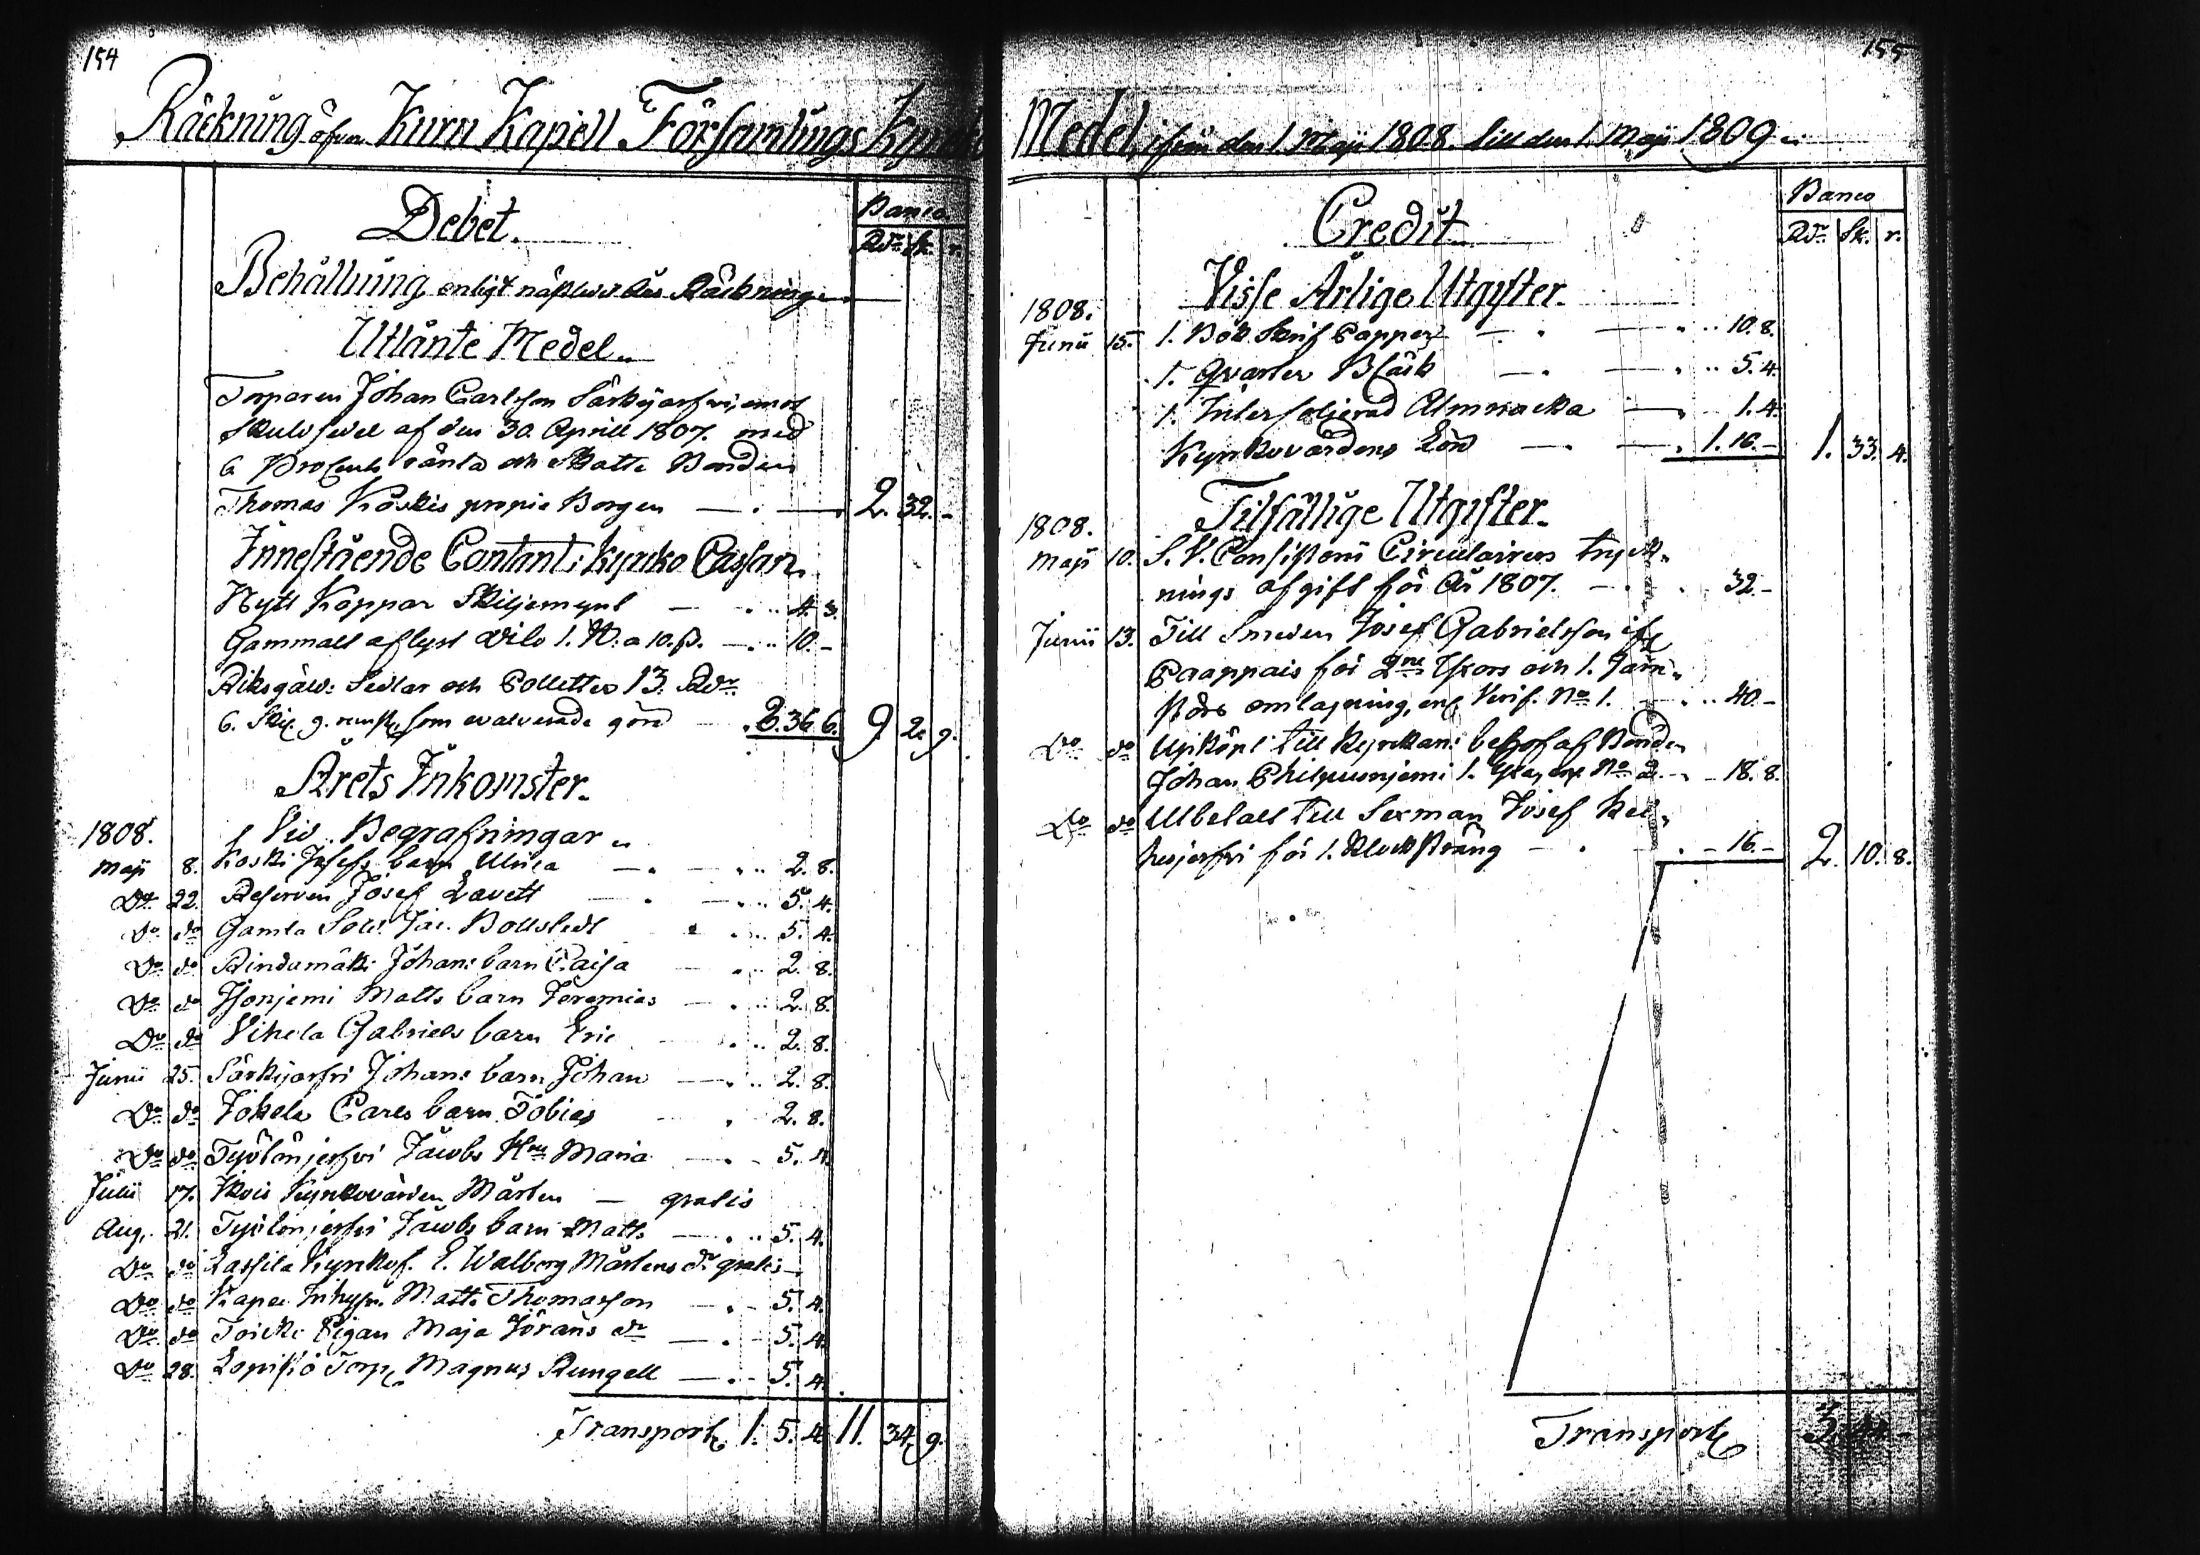 154
Räckning öfver Kuru Kapell Församlings Kyrko
Debet.
Banco
Rdr sk. r.
Behållning enligt näst års Räckning
Utlånte Medel
Torparen Johan Carlsson Särkijärfwi, emot
Skuldsedel af den 30. Aprill 1807. med
6 Procents ränta och Skatte Bonden
Thomas Koskis proprie Borgen — . — 2. 32. -
Innestående Contant i kyrko Cassan.
Nytt Koppar Skiljemynt — . .. 4. 3.
Gammalt aflyst dito 1. ℔. a 10. ß. — . .. 10. -
Riksgälds Sedlar och Polletter 13. Rdr
6. Skil. 9. runst. som evalverade göra — . 8. 36. 6. 9. 2. 9.
Årets Inkomster.
1808. Vid Begrafningar
Maji 8. Koski Josefs barn Ulrica — . — . .. 2. 8.
Do 22. Reserven Josef Lavett — . — . .. 5. 4.
Do do Gamla Sold. Jac. Bollstedt . .. 5. 4.
Do do Rindamäki Johans barn Caisa — . .. 2. 8.
Do do Matts barn Jeremias — . .. 2. 8.
Do do Vihela Gabriels barn Eric . .. 2. 8.
Junii 25. Särkijärfvi Johans barn Johan — . .. 2. 8.
Do do Jokela Carls barn Tobias . 2. 8.
Do do Työlönjerfvi Jacobs Hru Maria — . - 5. 4.
Julii 17. Kyrkovärden Mårten — gratis
Aug. 21. Työlönjerfvi Jacobs barn Matts — . .. 5. 4.
Do do Lassila Kyrkof. E. Walborg Mårtens dr gratis
Do do Kapee Inhyses Matts Thomasson — . - 5. 4.
Do do Toicko Pigan Maja Jörans dr — . - 5. 4.
Do 28. Lopisjö Torp. Magnus Rungell — . - 5. 4.
Transport 1. 5. 4. 11. 34. 9.
155
Medel, ifrån den 1. Maji 1808. till den 1. Maji 1809
Credit
Banco
Rdr sk. r.
Visse Årlige Utgifter.
1808.
Junii 15. 1. Bok Skrif Papper — . — . .. 10. 8.
1. Qvarter Bläck — . — . .. 5. 4.
1. Interfolierad Almnacka — . - 1. 4.
Kyrkovärdens Lön — . — . 1. 16. - 1. 33. 4.
Tilfällige Utgifter.
1808.
Maji 10. S. V. Consistorii Circulairers tryck-
nings afgift för År 1807. — . . 32. -
Junii 13. Till Smeden Josef Gabrielsson ifr.
Paappais för 2ne och 1. Järn-
störs omlagning, enl. Verif. No 1. — . .. 40. -
Do do Upköpt till Kyrkans behof af Bonden
Johan 1. No 2. - - 18. 8.
Do do Utbetalt till Sexman Josef
för 1. Klockstrång — . - . - 16. - 2. 10. 8.
Transport 3. 44. -